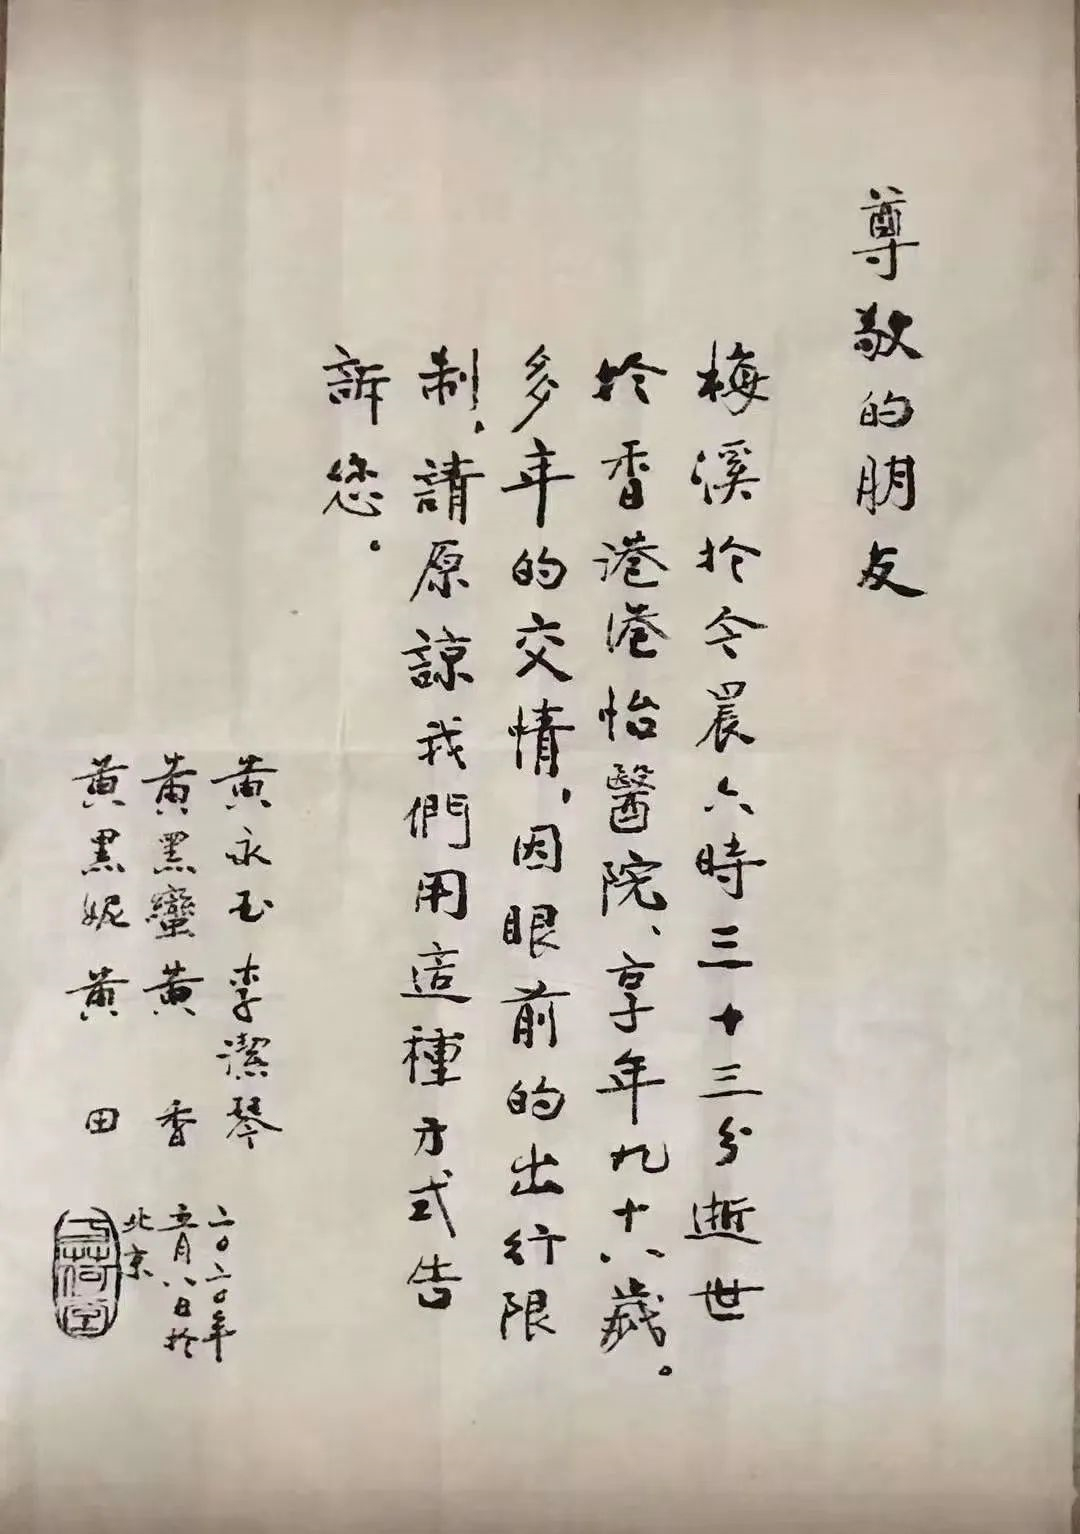 尊敬的朋友
梅溪於今晨六時三十三分逝世
於香港港怡醫院、享年九十八歲。
多年的交情，因眼前的出行限
制，請原諒我們用這種方式告
訴您。
黄永玉 李潔琴
黄黑蠻 黄香
黄黑妮 黄田
二〇二〇年
五月八日於
北京
荷堂